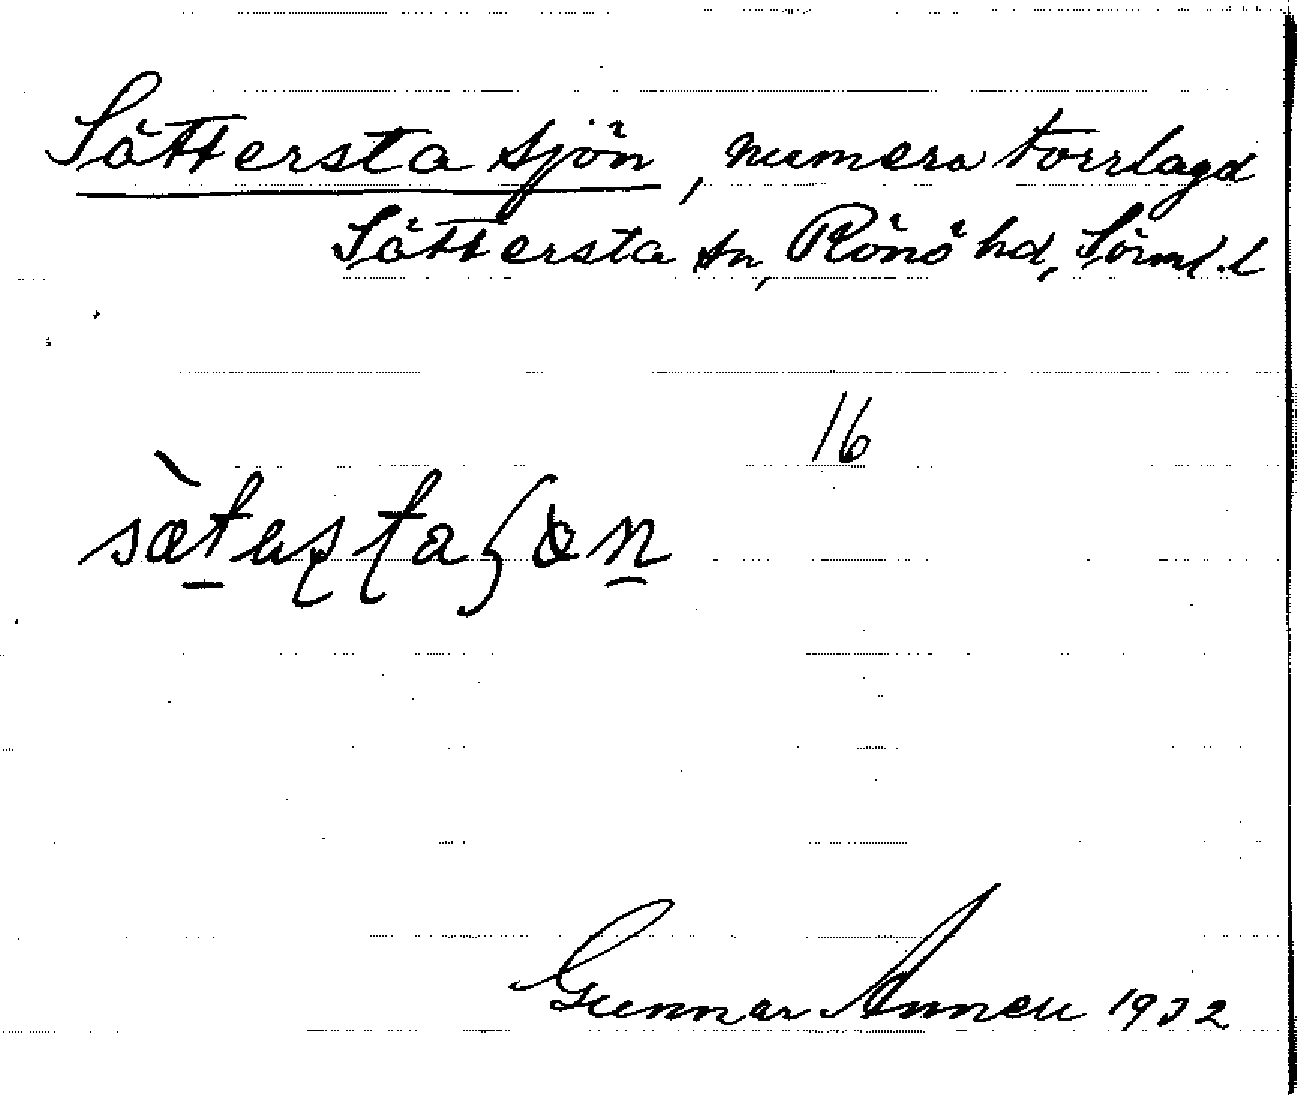 Sättersta sjön, numera torrlagd
Sättersta sn, Rönö hd, Sörml. l
16
Gunnar Annell 1932